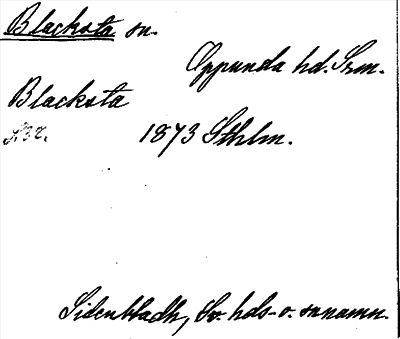 Blacksta sn.
Oppunda hd. Srm.
Blacksta
1873 Sthlm.
Sidenbladh, Sv. hds- o. snnamn.